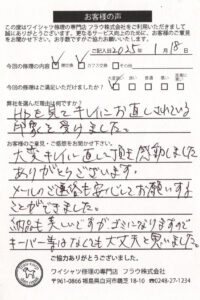 お客様の声
この度はワイシャツ修理の専門店 フラウ株式会社をご利用いただきまして
誠にありがとうございます。更なるサービス向上のために、お客様のご意見
をお聞かせ下さい。お手数ですがご協力お願いいたします。
ご記入日 2025年 1月 18日
今回の修理の内容は
今回の修理はご満足いただけましたか？
弊社を選んだ理由は何ですか？
HPを見てキレイにお直しされている
印象を受けました。
お客様のご意見・ご感想をお聞かせください。
大変キレイに直して頂き感動しました
ありがとうございます。
メールのご連絡も安心してお願いする
ことができました。
納品も美しいですがゴミになりますので
キーパー等はなくても大丈夫と思いました。
ご協力ありがとうございました。
ワイシャツ修理の専門店 フラウ株式会社
〒961-0866 福島県白河市鶴芝18-10 ☎0248-27-1234